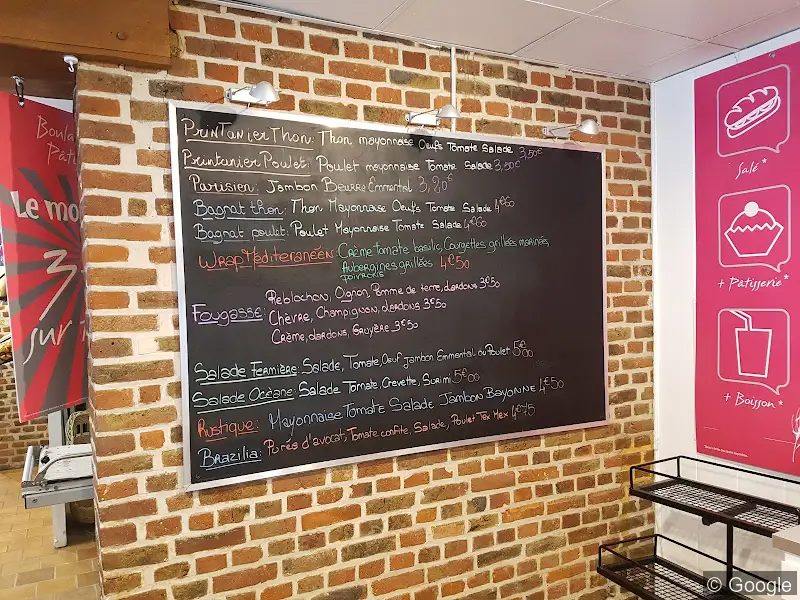 PrinTanier Thon: Thon mayonnaise Oeufs Tomate Salade 3,50€
Printanier Poulet: Poulet mayonnaise Tomate Salade 3,50€
Parisien: Jambon Beurre Emmental 3,20€
Bagnat thon: Thon Mayonnaise Oeufs Tomate Salade 4€60
Bagnat poulet: Poulet Mayonnaise Tomate Salade 4€60
Wrap Méditeranéen: Crème tomate basilic, Courgettes grillées marinées,
Aubergines grillées 4€50
poivrons
Reblochon, Oignon, Pomme de terre, lardons 3€50
Fougasse Chèvre, Champignon, lardons 3€50
Crème, lardons, Gruyère 3€50
Salade Fermière: Salade, Tomate, Oeuf Jambon Emmental ou Poulet 5€00
Salade Océane: Salade Tomate Crevette, Surimi 5€00
Rustique: Mayonnaise Tomate Salade Jambon Bayonne 4€50
Brazilia: Purée d'avocat, Tomate confite, Salade, Poulet Tex Mex 4€75
Boula
Pât
Le mo
3
sur
Salé*
+ Pâtisserie*
+ Boisson*
© Google